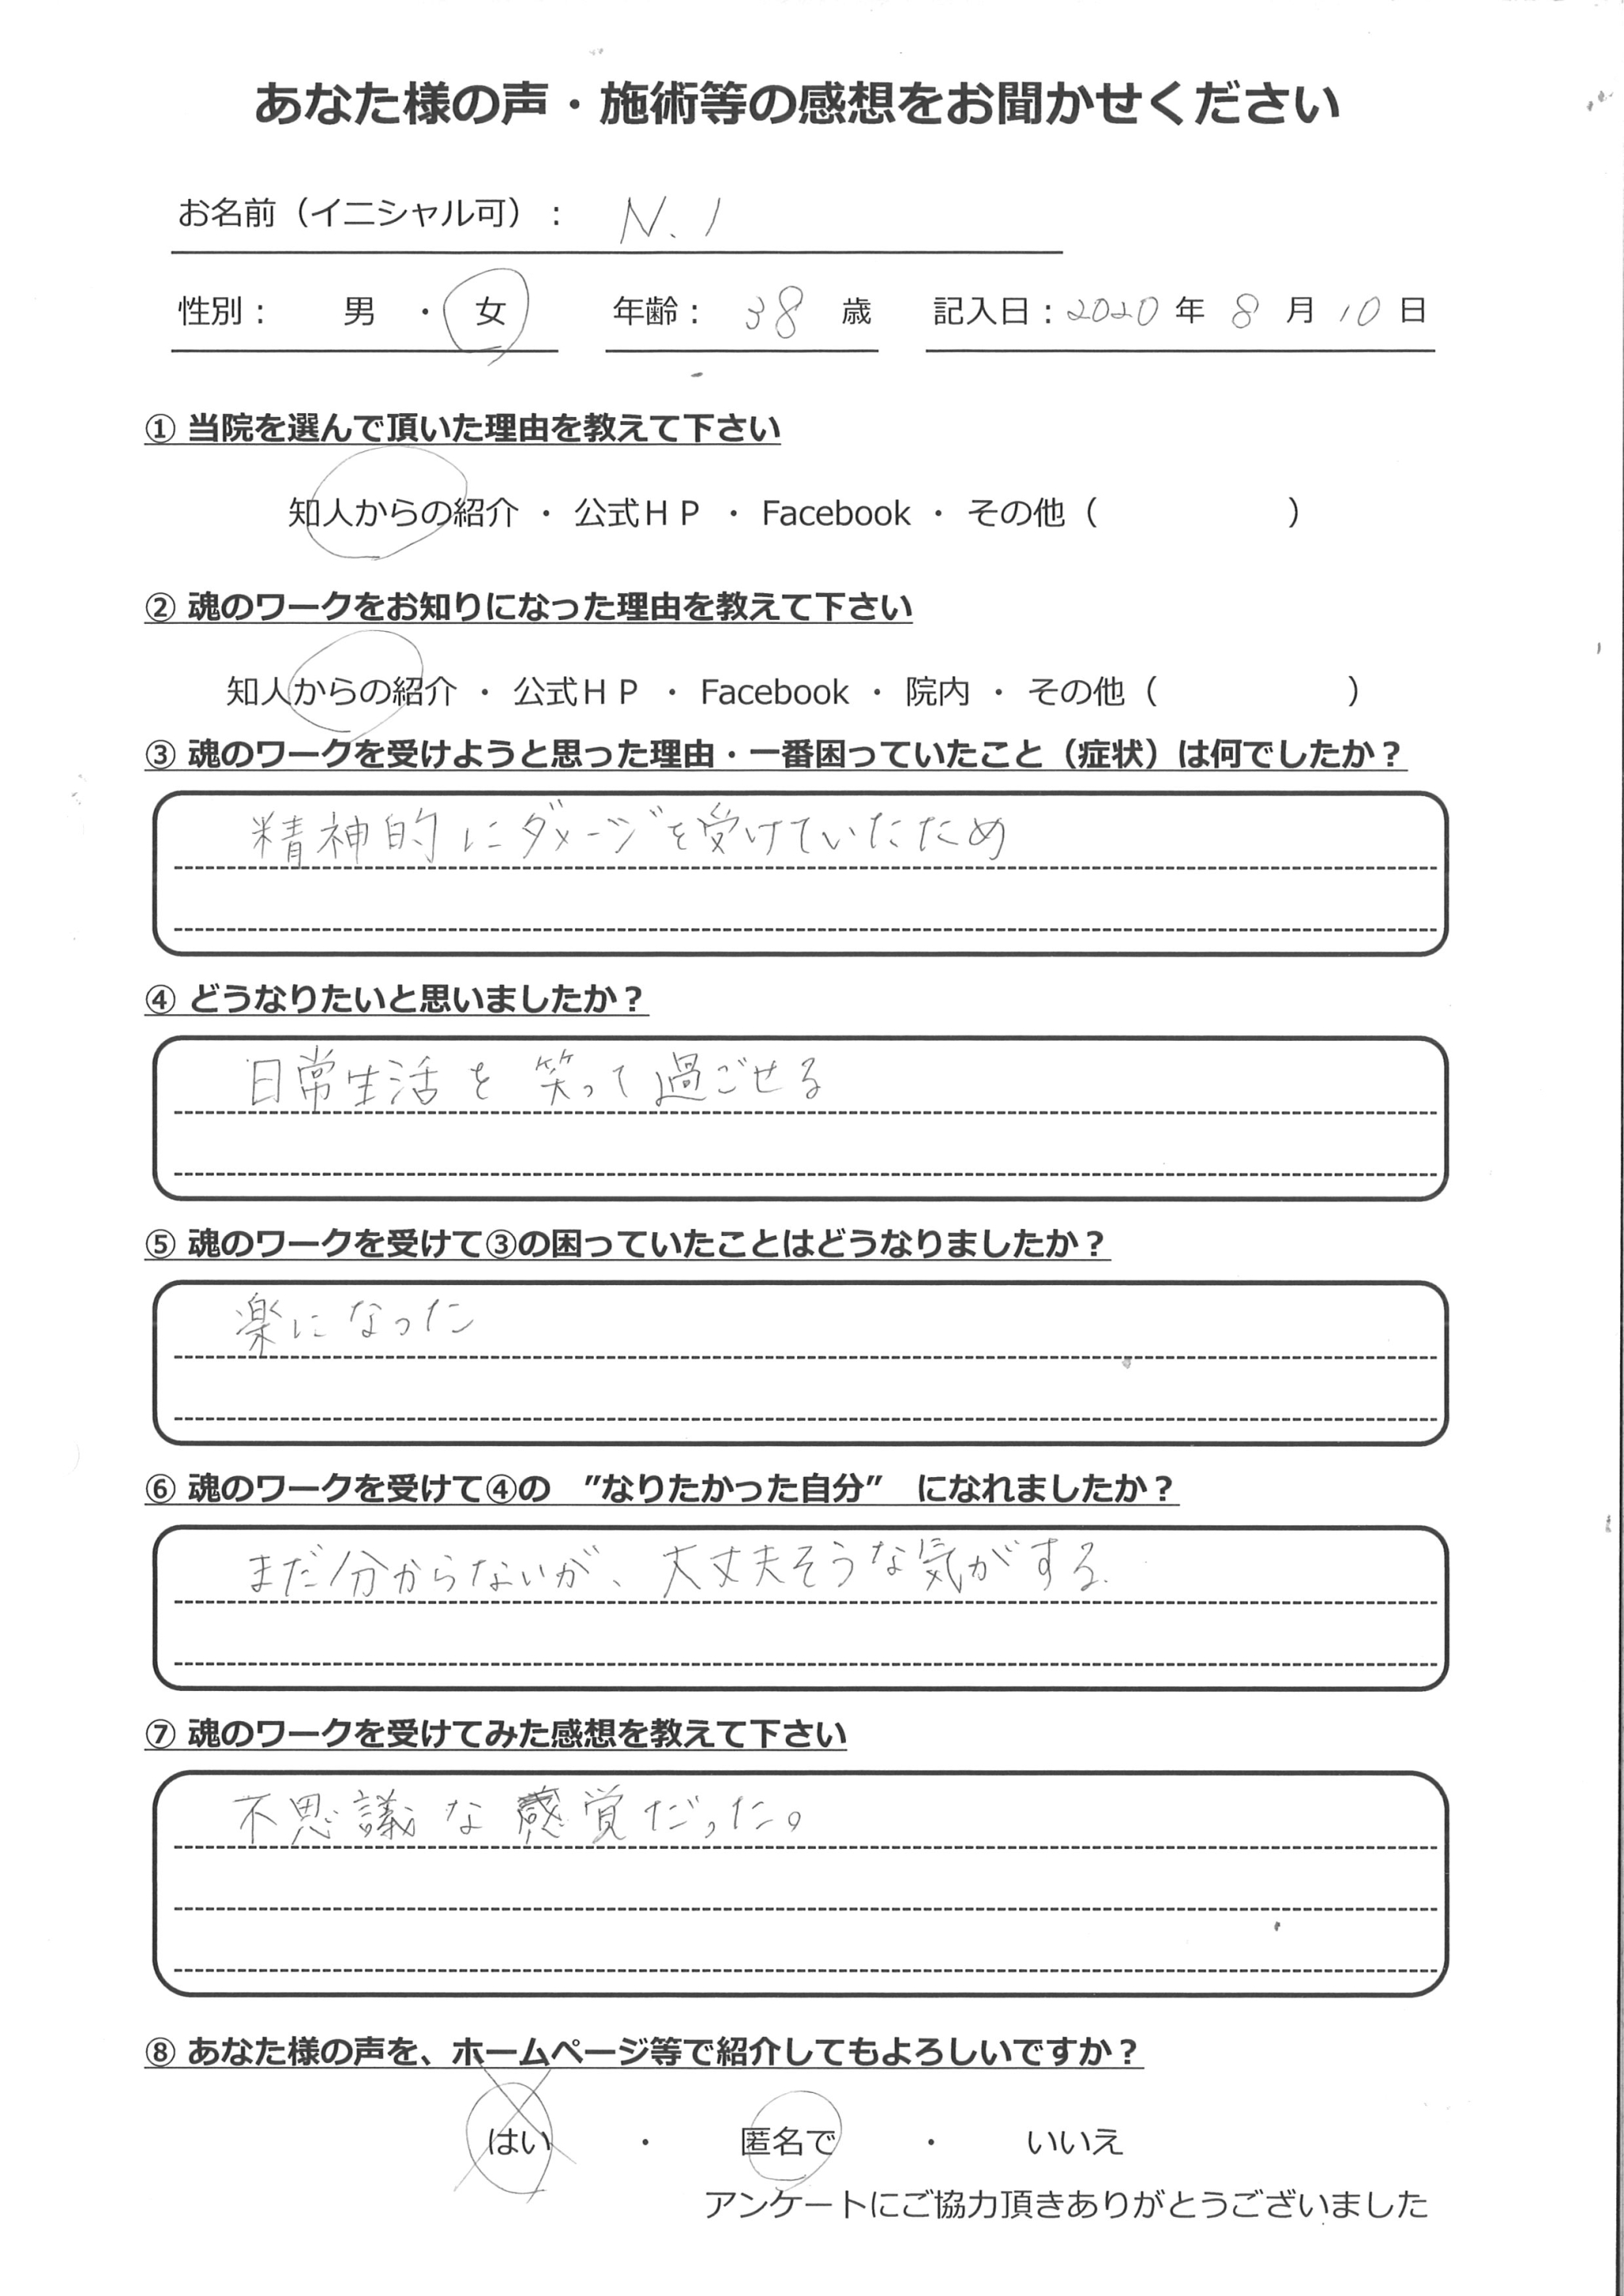 あなた様の声・施術等の感想をお聞かせください
お名前（イニシャル可）： N.I
性別： 男 ・ 女 年齢： 38 歳 記入日：2020 年 8 月 10 日
① 当院を選んで頂いた理由を教えて下さい
知人からの紹介 ・ 公式ＨＰ ・ Facebook ・ その他（ ）
② 魂のワークをお知りになった理由を教えて下さい
知人からの紹介 ・ 公式ＨＰ ・ Facebook ・ 院内 ・ その他（ ）
③ 魂のワークを受けようと思った理由・一番困っていたこと（症状）は何でしたか？
精神的にダメージを受けていたため
④ どうなりたいと思いましたか？
日常生活を笑って過ごせる
⑤ 魂のワークを受けて③の困っていたことはどうなりましたか？
楽になった
⑥ 魂のワークを受けて④の ”なりたかった自分” になれましたか？
まだ分からないが、大丈夫そうな気がする.
⑦ 魂のワークを受けてみた感想を教えて下さい
不思議な感覚だった。
⑧ あなた様の声を、ホームページ等で紹介してもよろしいですか？
はい ・ 匿名で ・ いいえ
アンケートにご協力頂きありがとうございました